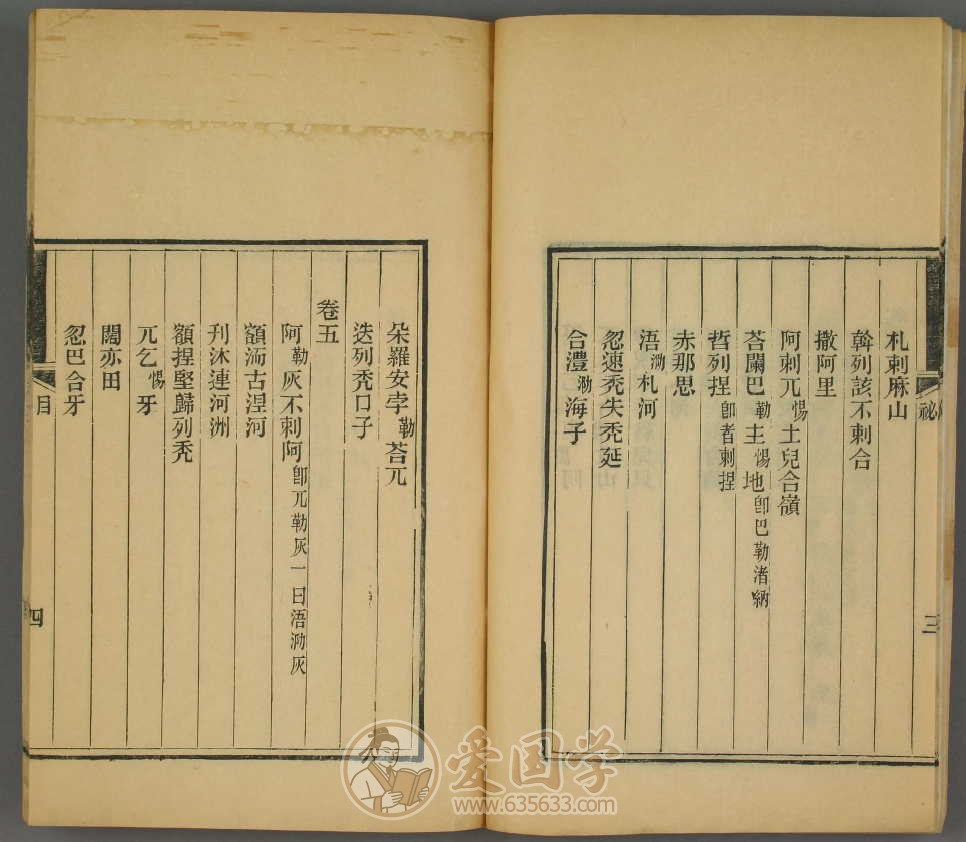 札剌麻山
斡列該不剌合
撒阿里
阿剌兀惕土兒合嶺
荅闌巴勒主惕地卽巴勒渚納
晢列揑卽者剌揑
赤那思
浯泐札河
忽速禿失禿延
合澧泐海子
祕
三
朵羅安孛勒荅兀
迭列禿口子
卷五
阿勒灰不剌阿卽兀勒灰一曰浯泐灰
額洏古涅河
刋沐連河洲
額揑堅歸列禿
兀乞惕牙
闊亦田
忽巴合牙
目
四
爱国学
www.635633.com